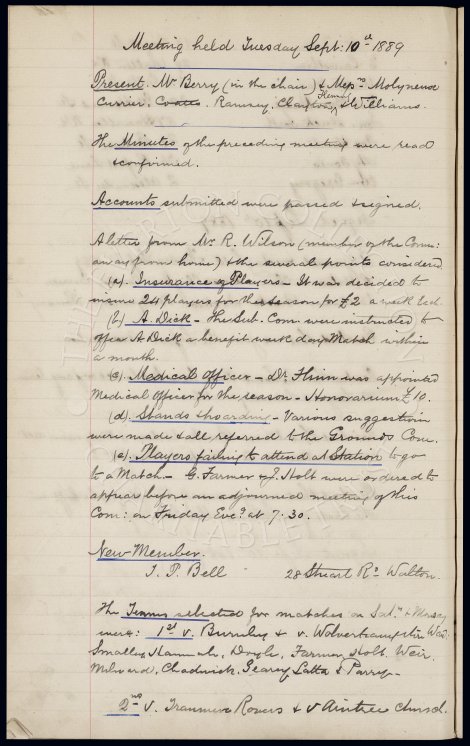 Meeting held Tuesday Sept: 10th 1889
Present. Mr Berry (in the chair) & Messrs Molyneux
Currier, Coates, Ramsey, Clayton, Fleming & Williams.
The Minutes of the preceding meeting were read
& confirmed.
Accounts submitted were passed & signed.
A letter from Mr. R. Wilson (member of the Com:
away from home) & the several points considered
(a). Insurance of Players - It was decided to
insure 24 players for the season for £2 a week each.
(b) A. Dick - The Sub. Com. were instructed to
offer A Dick a benefit week day Match within
a month.
(c). Medical Officer - Dr. was appointed
Medical Officer for the season - Honorarium £10.
(d). Stands & hoarding - Various suggestions
were made & all referred to the Grounds Com.
(e). Players failing to attend at Station to go
to a Match - G. Farmer & J. Holt were ordered to
appear before an adjourned meeting of this
Com: on Friday Eveg at 7.30.
New Member.
T. P. Bell 28 Stuart Rd Walton.
The Teams selected for matches on Saty & Monday
were: 1st v. Burnley & v. Wolverhampton Wand.
Smalley, Hannah, Doyle, Farmer, Holt, Weir,
Milward, Chadwick, Geary, Latta & Parry -
2nd v. Tranmere Rovers & v Aintree Church.